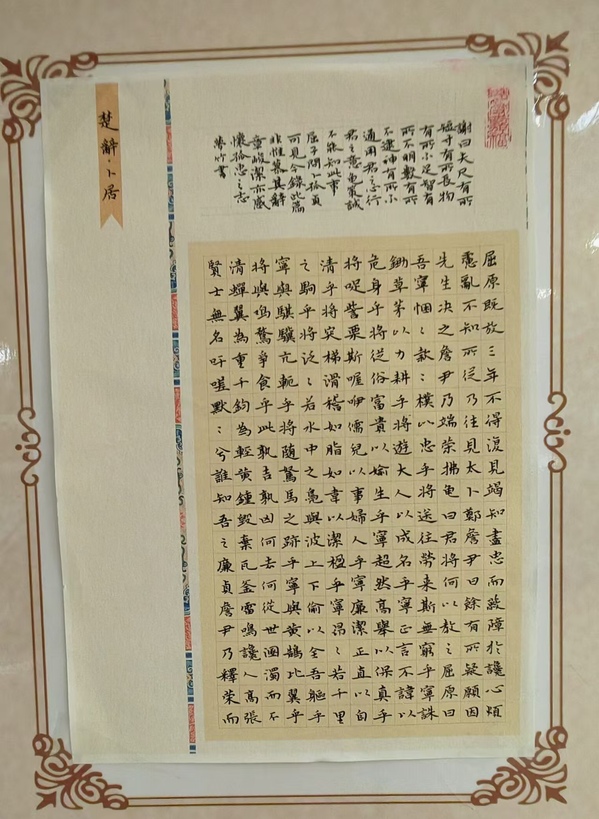 楚辭·卜居
屈原既放三年不得復見竭知盡忠而蔽障於讒心煩
慮亂不知所從乃往見太卜鄭詹尹曰餘有所疑願因
先生決之詹尹乃端策拂龜曰君將何以教之屈原曰
吾寧悃〻款〻樸以忠乎將送往勞來斯無窮乎寧誅
鋤草茅以力耕乎將遊大人以成名乎寧正言不諱以
危身乎將從俗富貴以媮生乎寧超然高舉以保真乎
將哫訾栗斯喔咿儒兒以事婦人乎寧廉潔正直以自
清乎將突梯滑稽如脂如韋以潔楹乎寧昂〻若千里
之駒乎將泛〻若水中之鳧與波上下偷以全吾軀乎
寧與騏驥亢軛乎將隨駑馬之跡乎寧與黃鵠比翼乎
將與鳴鶩爭食乎此孰吉孰凶何去何從世溷濁而不
清蟬翼為重千鈞為輕黃鐘毀棄瓦釜雷鳴讒人高張
賢士無名吁嗟默〻兮誰知吾之廉貞詹尹乃釋策而
謝曰夫尺有所
短寸有所長物
有所不足智有
所不明數有所
不逮神有所不
通用君之心行
君之意龜策誠
不能知此事
屈子問卜孤貞
可見今錄此篇
非惟慕其辭
章峻潔亦感
懷孤忠之志
竹書